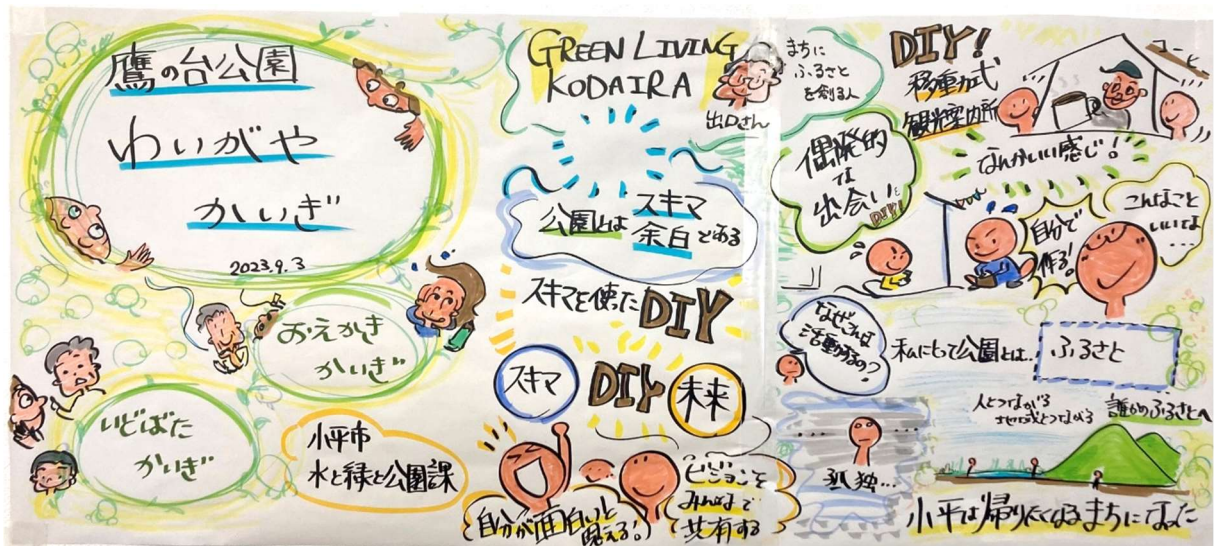 鷹の台公園
わいがや
かいぎ
2023.9.3
おえかき
かいぎ
いどばた
かいぎ
小平市
水と緑と公園課
GREEN LIVING
KODAIRA
出口さん
まちに
ふるさと
を創る人
公園とは スキマ
余白である
スキマを使ったDIY
スキマ DIY 未来
自分が面白いと
思える!
ビジョンを
みんなで
共有する
DIY!
移動式
観光案内所
コーヒー
なんかいい感じ!
偶発的
な
出会い
DIY!
自分で
作る!
こんなこと
いいな
...
なぜこれは
活動するの?
私にとって公園とは.. ふるさと
人とつながる
誰かのふるさとへ
孤独...
小平は帰りたくなるまちになった